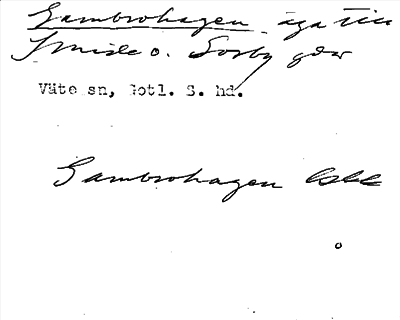 Gambrohagen äga till
Smisle o. Sorby gdar
Väte sn, Gotl. S. hd.
Gambrohagen